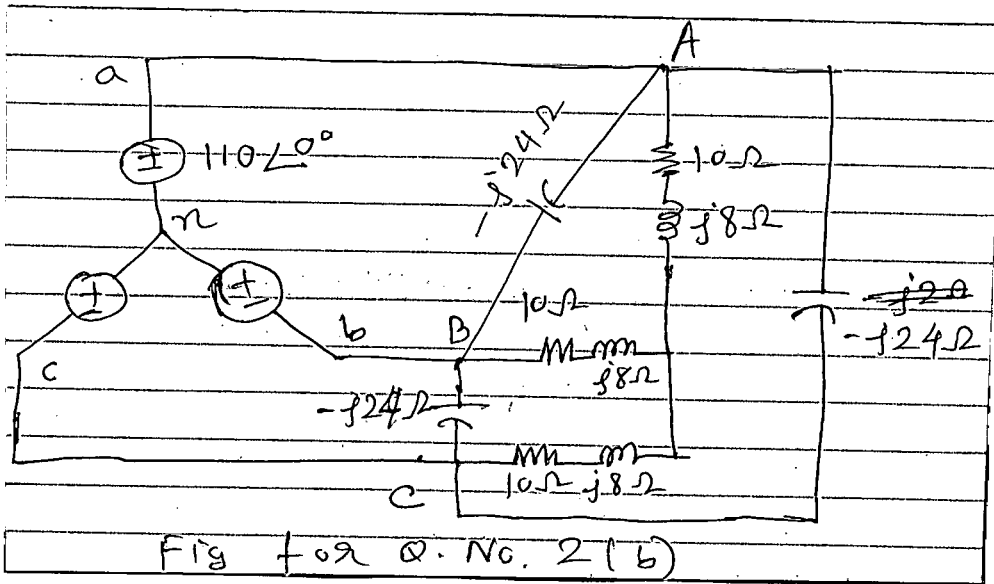 A
a
110∠0°
-j24Ω
10Ω
j8Ω
n
10Ω
j2Ω
-j24Ω
b
B
j8Ω
c
-j24Ω
10Ω j8Ω
C
Fig for Q. No. 2(b)